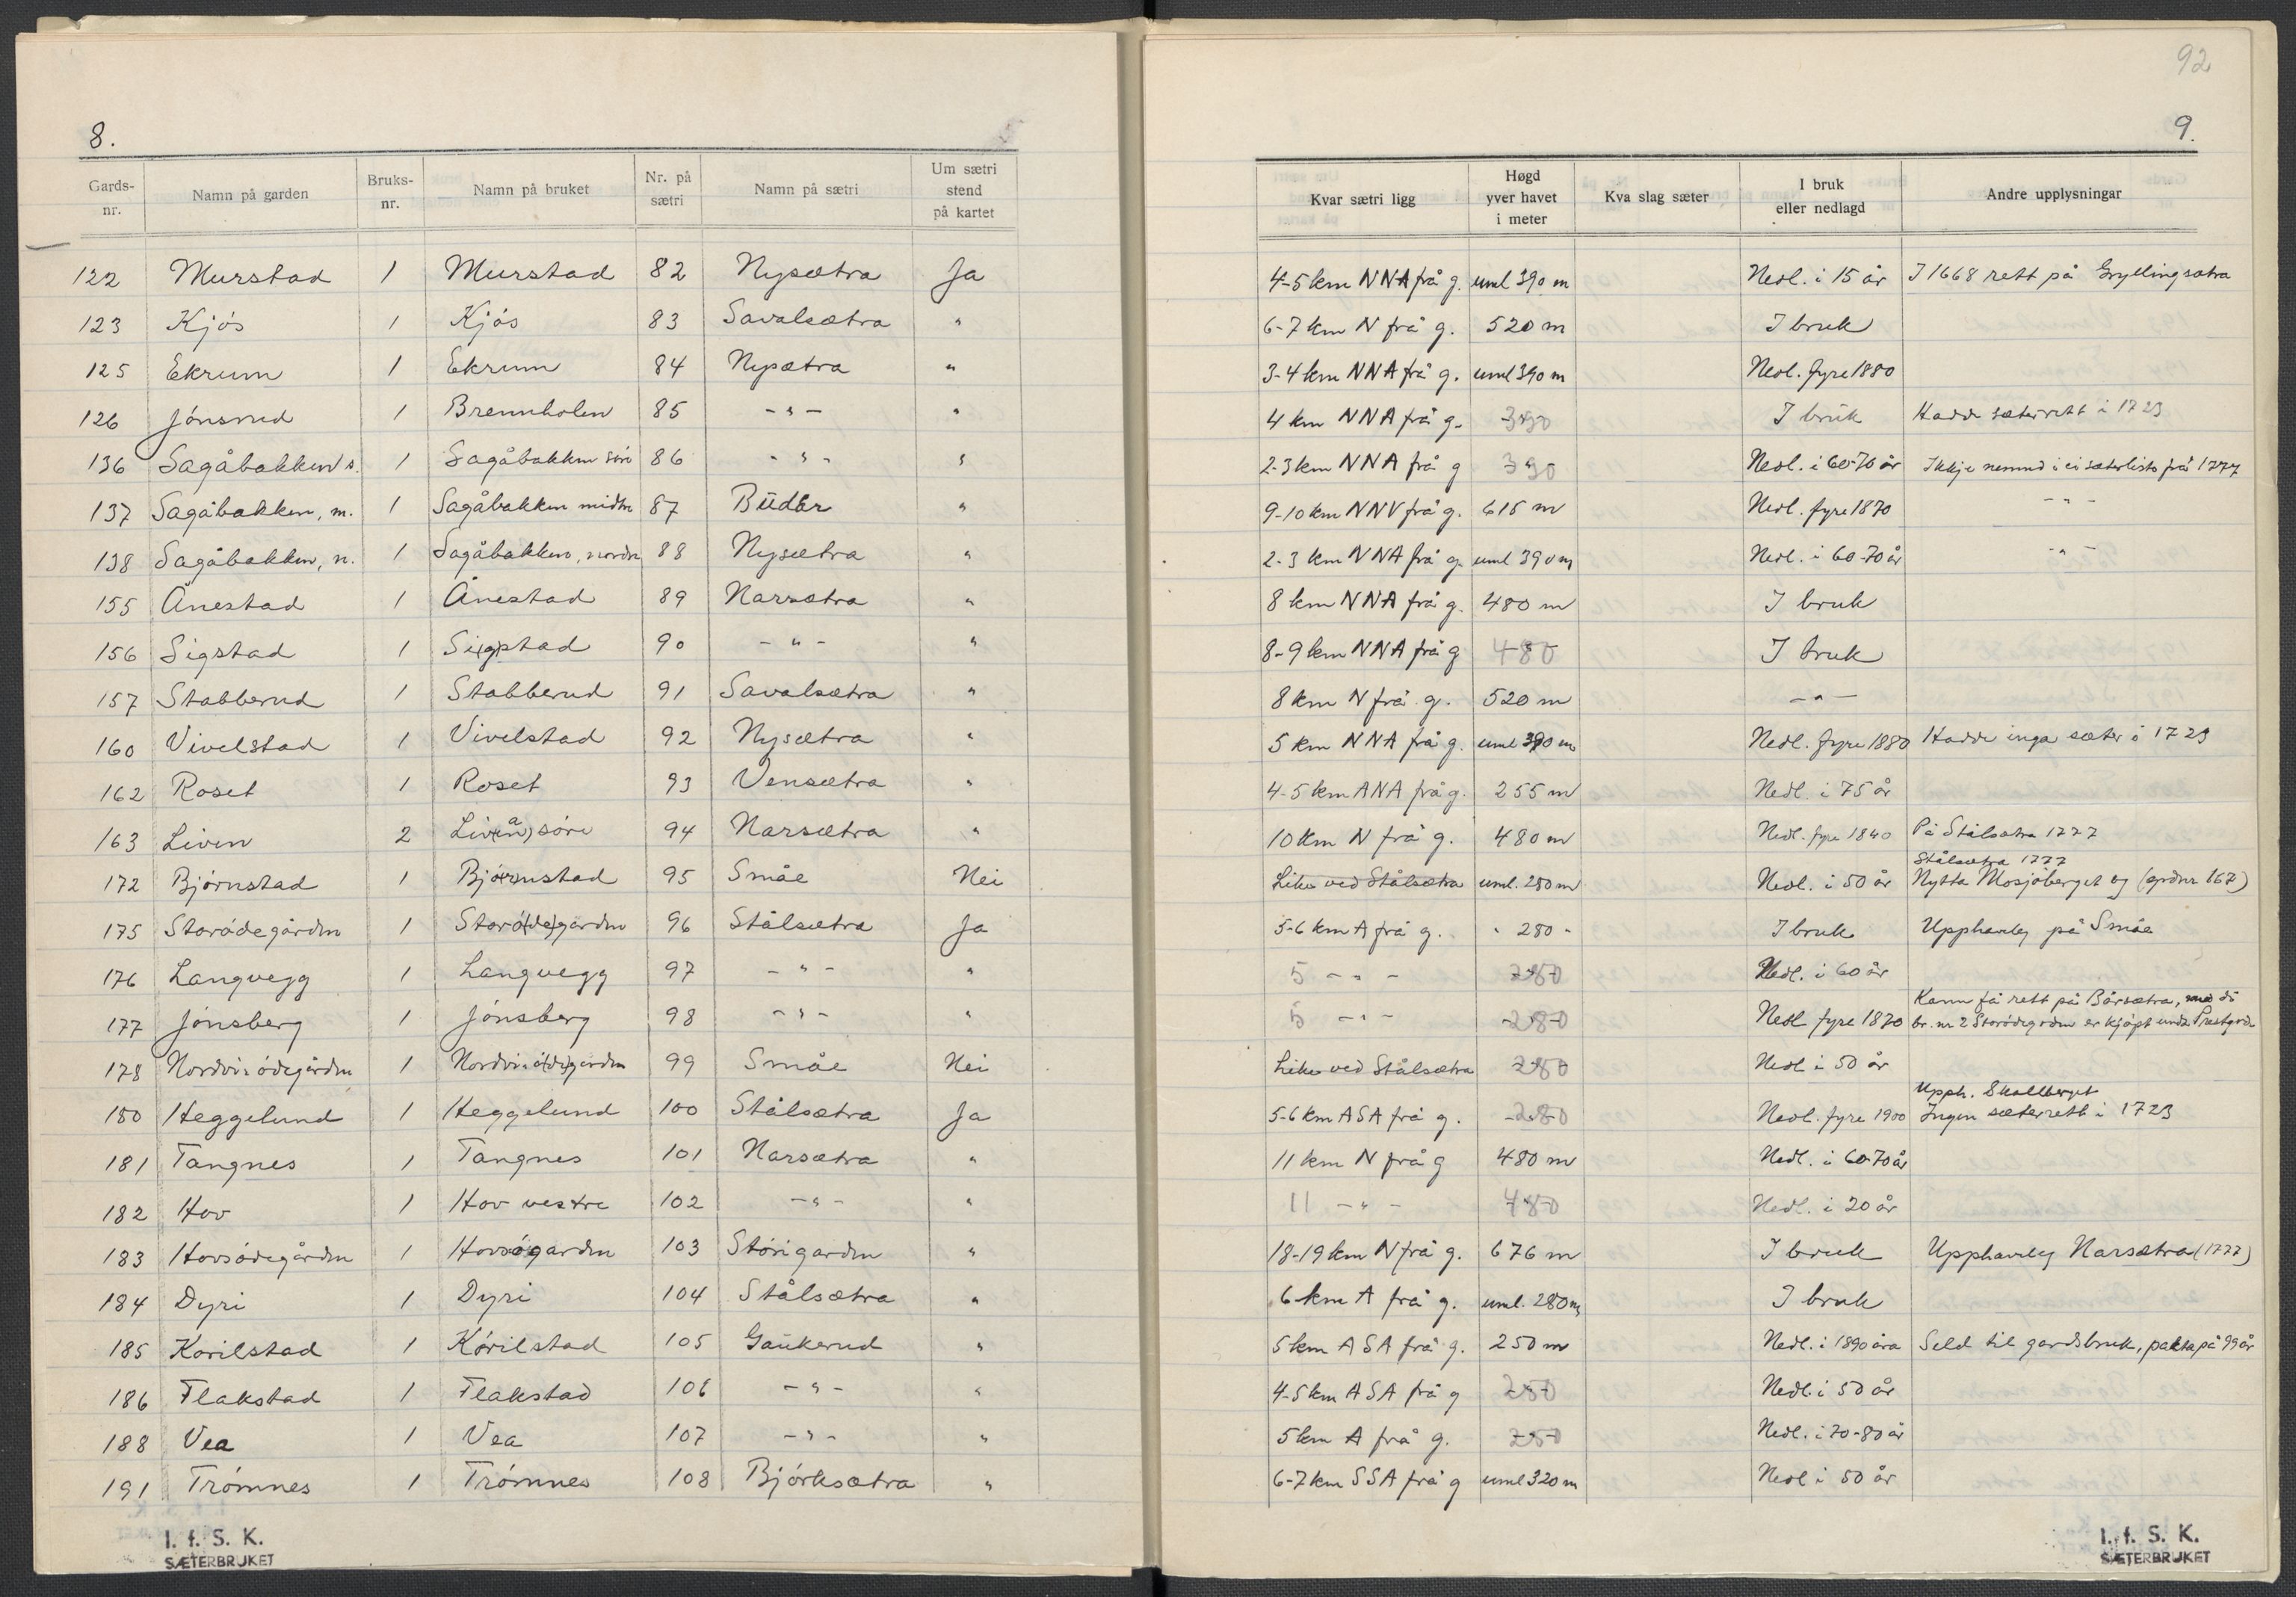 92
8.
9.
Gards-nr. Namn på garden Bruks-nr. Namn på bruket Nr. på sætri Namn på sætri Um sætri stend på kartet Kvar sætri ligg Høgd yver havet i meter Kva slag sæter I bruk eller nedlagd Andre upplysningar
122 Murstad 1 Murstad 82 Nysætra Ja 4-5 km NNA frå g. uml 390 m Nedl. i 15 år I 1668 rett på Gryllingsætra
123 Kjós 1 Kjós 83 Savalsætra " 6-7 km N frå g. 520 m I bruk
125 Ekrum 1 Ekrum 84 Nysætra " 3-4 km NNA frå g. uml 390 m Nedl. fyre 1880
126 Jónsrud 1 Brennholen 85 -"- " 4 km NNA frå g. 390 I bruk Hadde sæterrett i 1723
136 Sagåbakken s. 1 Sagåbakken søre 86 -"- " 2-3 km NNA frå g 390 Nedl. i 60-70 år Ikkje nemnd i ei sæterliste frå 1777
137 Sagåbakken, m. 1 Sagåbakken midtre 87 Büdór " 9-10 km NNV frå g. 615 m Nedl. fyre 1870 -"-
138 Sagåbakken, n. 1 Sagåbakken, nordre 88 Nysætra " 2-3 km NNA frå g. uml 390 m Nedl. i 60-70 år -"-
155 Ånestad 1 Ånestad 89 Narsætra " 8 km NNA frå g. 480 m I bruk
156 Sigstad 1 Si(g)stad 90 -"- " 8-9 km NNA frå g 480 I bruk
157 Stabberud 1 Stabberud 91 Savalsætra " 8 km N frå g. 520 m -"-
160 Vivelstad 1 Vivelstad 92 Nysætra " 5 km NNA frå g. uml 390 m Nedl. fyre 1880 Hadde inga sæter i 1723
162 Roset 1 Roset 93 Vensætra " 4-5 km ANA frå g. 255 m Nedl. i 75 år
163 Liven 2 Liv(a)n søre 94 Narsætra " 10 km N frå g. 480 m Nedl. fyre 1840 På Stålsætra 1777
172 Bjørnstad 1 Bjø(r)nstad 95 Småe Nei Like ved Stålsætra uml. 280 m Nedl. i 50 år Stålsætra 1777
Nytta Mosjøberget og (grdnr 167)
175 Storødegården 1 Storø(de)garden 96 Stålsætra Ja 5-6 km A frå g. " 280 " I bruk Upphavleg på Småe
176 Langvegg 1 Langvegg 97 -"- " 5 -"- 280 Nedl. i 60 år
177 Jónsberg 1 Jónsberg 98 -"- " 5 -"- 280 Nedl fyre 1870 Kann få rett på Bårsætra, med di
br. nr 2 Storødegrden er kjøpt under Prestgrdn
178 Nordvisødegården 1 Nordvisø(de)garden 99 Småe Nei Like ved Stålsætra 280 Nedl i 50 år
180 Heggelund 1 Heggelund 100 Stålsætra Ja 5-6 km ASA frå g. 280 Nedl. fyre 1900 Upph. Skallberget
Ingen sæterrett i 1723
181 Tangnes 1 Tangnes 101 Narsætra " 11 km N frå g 480 m Nedl. i 60-70 år
182 Hov 1 Hov vestre 102 -"- " 11 -"- 480 Nedl. i 20 år
183 Hovsødegården 1 Hovsøgarden 103 Størigarden " 18-19 km N frå g. 676 m I bruk Upphavleg Narsætra (1777)
184 Dyri 1 Dyri 104 Stålsætra " 6 km A frå g. uml. 280 m I bruk
185 Korilstad 1 Kórilstad 105 Gaükerud " 5 km ASA frå g. 250 m Nedl. i 1890 åra Seld til gardsbruk, pakta på 99 år
186 Flakstad 1 Flakstad 106 -"- " 4-5 km ASA frå g 250 Nedl. i 50 år
188 Vea 1 Vea 107 -"- " 5 km A frå g. 250 Nedl. i 70-80 år
191 Trømnes 1 Trómnes 108 Bjórksætra " 6-7 km SSA frå g uml 320 m Nedl i 50 år
I. f. S. K.
SÆTERBRUKET
I. f. S. K.
SÆTERBRUKET